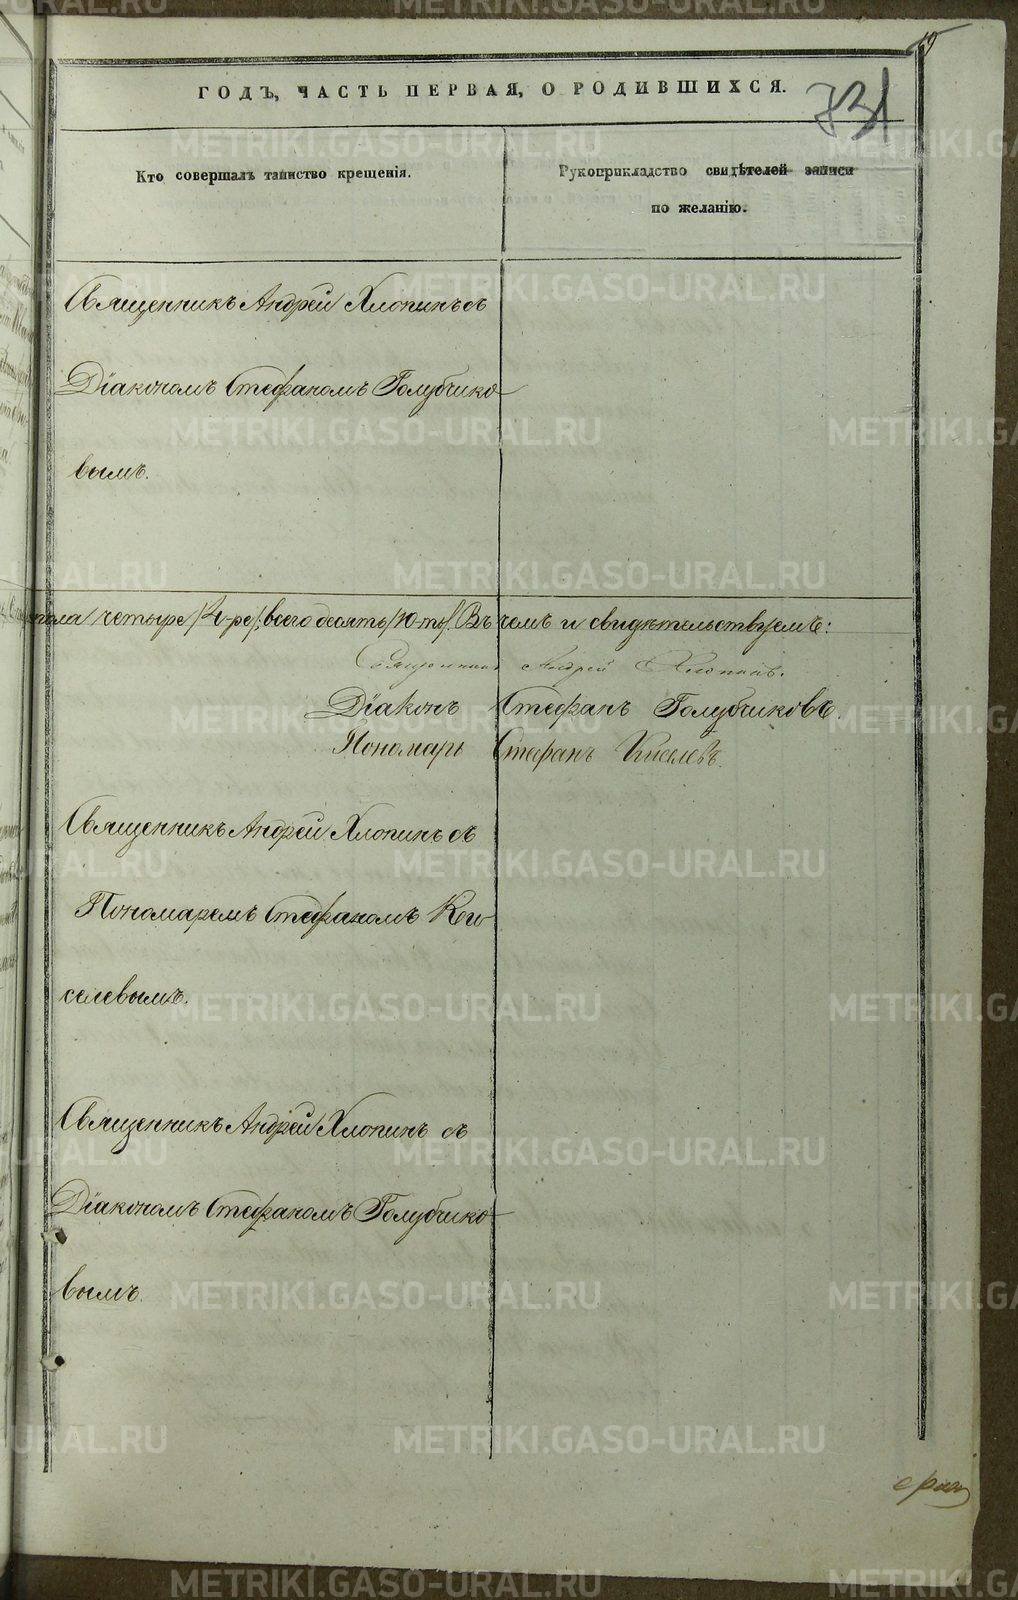 19
731
ГОДЪ, ЧАСТЬ ПЕРВАЯ, О РОДИВШИХСЯ.
Кто совершалъ таинство крещенія.
Рукоприкладство свидѣтелей записи
по желанію.
Священникъ Андрей Хлопинъ съ
Діакономъ Стефаномъ Голубчико
вымъ.
пола четыре /4-ре/, всего десять /10-ть/. Въ чемъ и свидѣтельствуемъ:
Священникъ Андрей Хлопинъ.
Діаконъ Стефанъ Голубчиковъ.
Пономарь Стефанъ Киселевъ.
Священникъ Андрей Хлопинъ съ
Пономаремъ Стефаномъ Ки
селевымъ.
Священникъ Андрей Хлопинъ съ
Діакономъ Стефаномъ Голубчико
вымъ.
METRIKI.GASO-URAL.RU